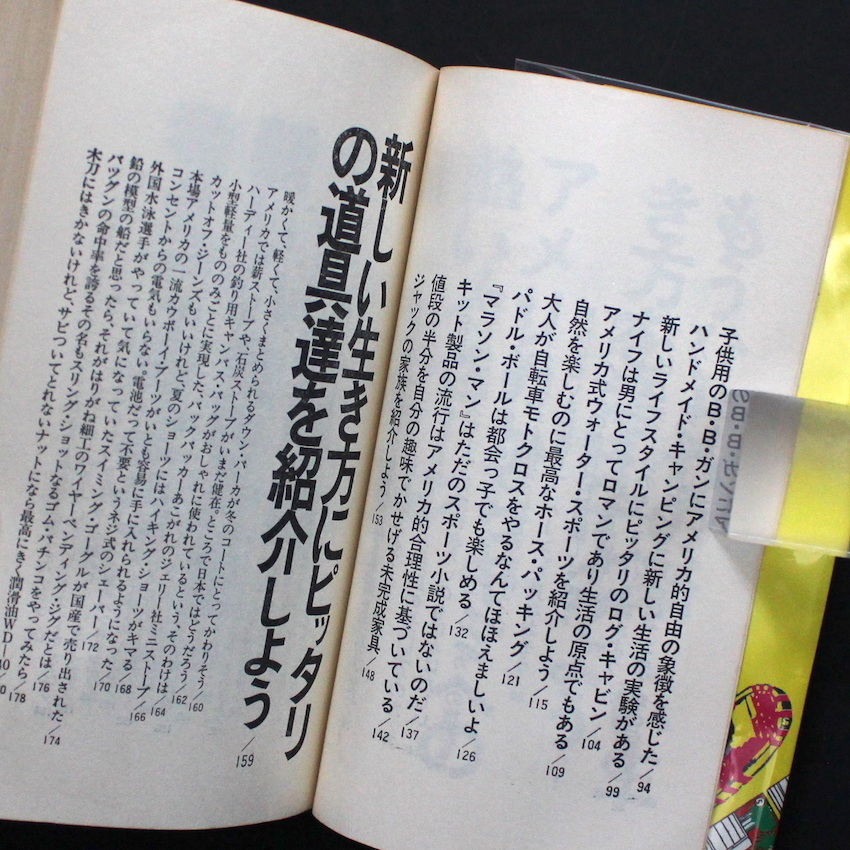 子供用のB・B・ガンにアメリカ的自由の象徴を感じた/94
ハンドメイド・キャンピングに新しい生活の実験がある/99
新しいライフスタイルにピッタリのログ・キャビン/104
ナイフは男にとってロマンであり生活の原点でもある/109
アメリカ式ウォーター・スポーツを紹介しよう/115
自然を楽しむのに最高なホース・パッキング/121
大人が自転車モトクロスをやるなんてほほえましいよ/126
パドル・ボールは都会っ子でも楽しめる/132
『マラソン・マン』はただのスポーツ小説ではないのだ/137
キット製品の流行はアメリカ的合理性に基づいている/142
値段の半分を自分の趣味でかせげる未完成家具/148
ジャックの家族を紹介しよう/153
新しい生き方にピッタリ
の道具達を紹介しよう/159
暖かくて、軽くて、小さくまとめられるダウン・パーカが冬のコートにとってかわりそう/160
アメリカでは薪ストーブや、石炭ストーブがいまだ健在。ところで日本ではどうだろう/162
ハーディー社の釣り用キャンバス・バッグがおしゃれに使われているという、そのわけは/164
小型軽量をもののみごとに実現した、バックパッカーあこがれのジェリー社ミニストーブ/166
カットオフ・ジーンズもいいけれど、夏のショーツにはハイキング・ショーツがキマる/168
本場アメリカの一流カウボーイ・ブーツがいとも容易に手に入れられるようになった/170
コンセントからの電気もいらない、電池だって不要というネジ式のシェーバー/172
外国水泳選手がやっていて気になっていたスイミング・ゴーグルが国産で売り出された/174
鉛の模型の船だと思ったら、それがはりがね細工のワイヤーベンディング・ジグだとは/176
バツグンの命中率を誇るその名もスリング・ショットなるゴム・パチンコをやってみたら/178
木刀にはきかないけれど、サビついてとれないナットになら最高にきく潤滑油WD-40